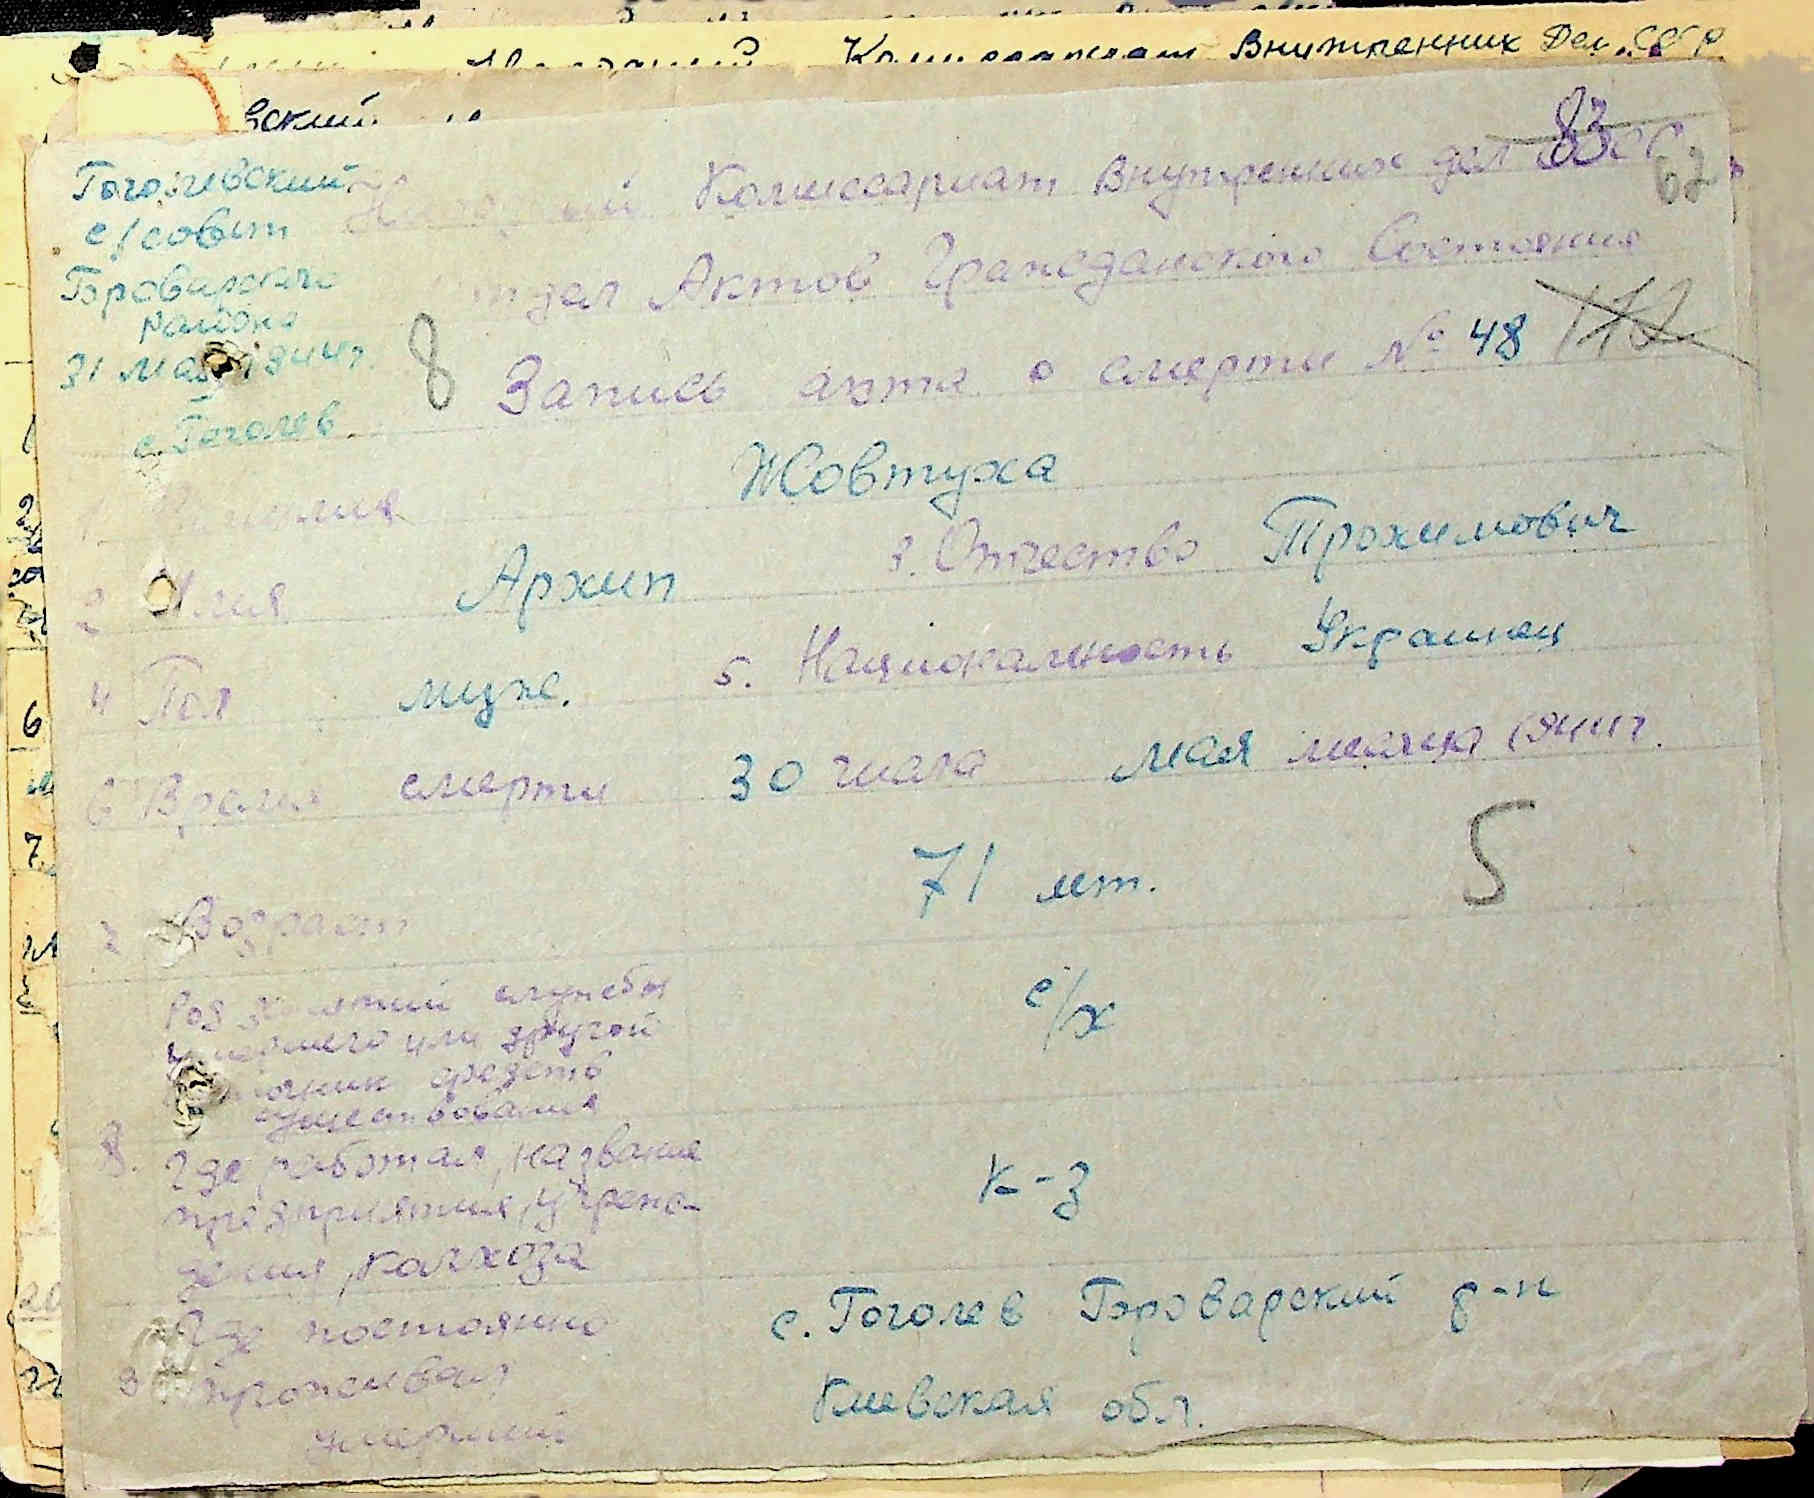 Комиссариат Внутренних Дел СССР
вский
83
62
Гоголевский
с/совет
Броварского
района
31 мая 1944г.
с. Гоголев
Народный Комиссариат Внутренних дел СССР
Отдел Актов Гражданского Состояния
8 Запись акта о смерти № 48
1. Фамилия Жовтуха
2 Имя Архип 3. Отчество Трохимович
4 Пол муж. 5. Национальность Украинец
6 Время смерти 30 числа мая месяца 1944г.
7 Возраст 71 лет. 5
Род занятий службы с/х
умершего или другой
источник средств
существования
8. Где работал, название к-з
предприятия, учреж-
дения, колхоза
Где постоянно с. Гоголев Броварский р-н
9 проживал Киевская обл.
умерший